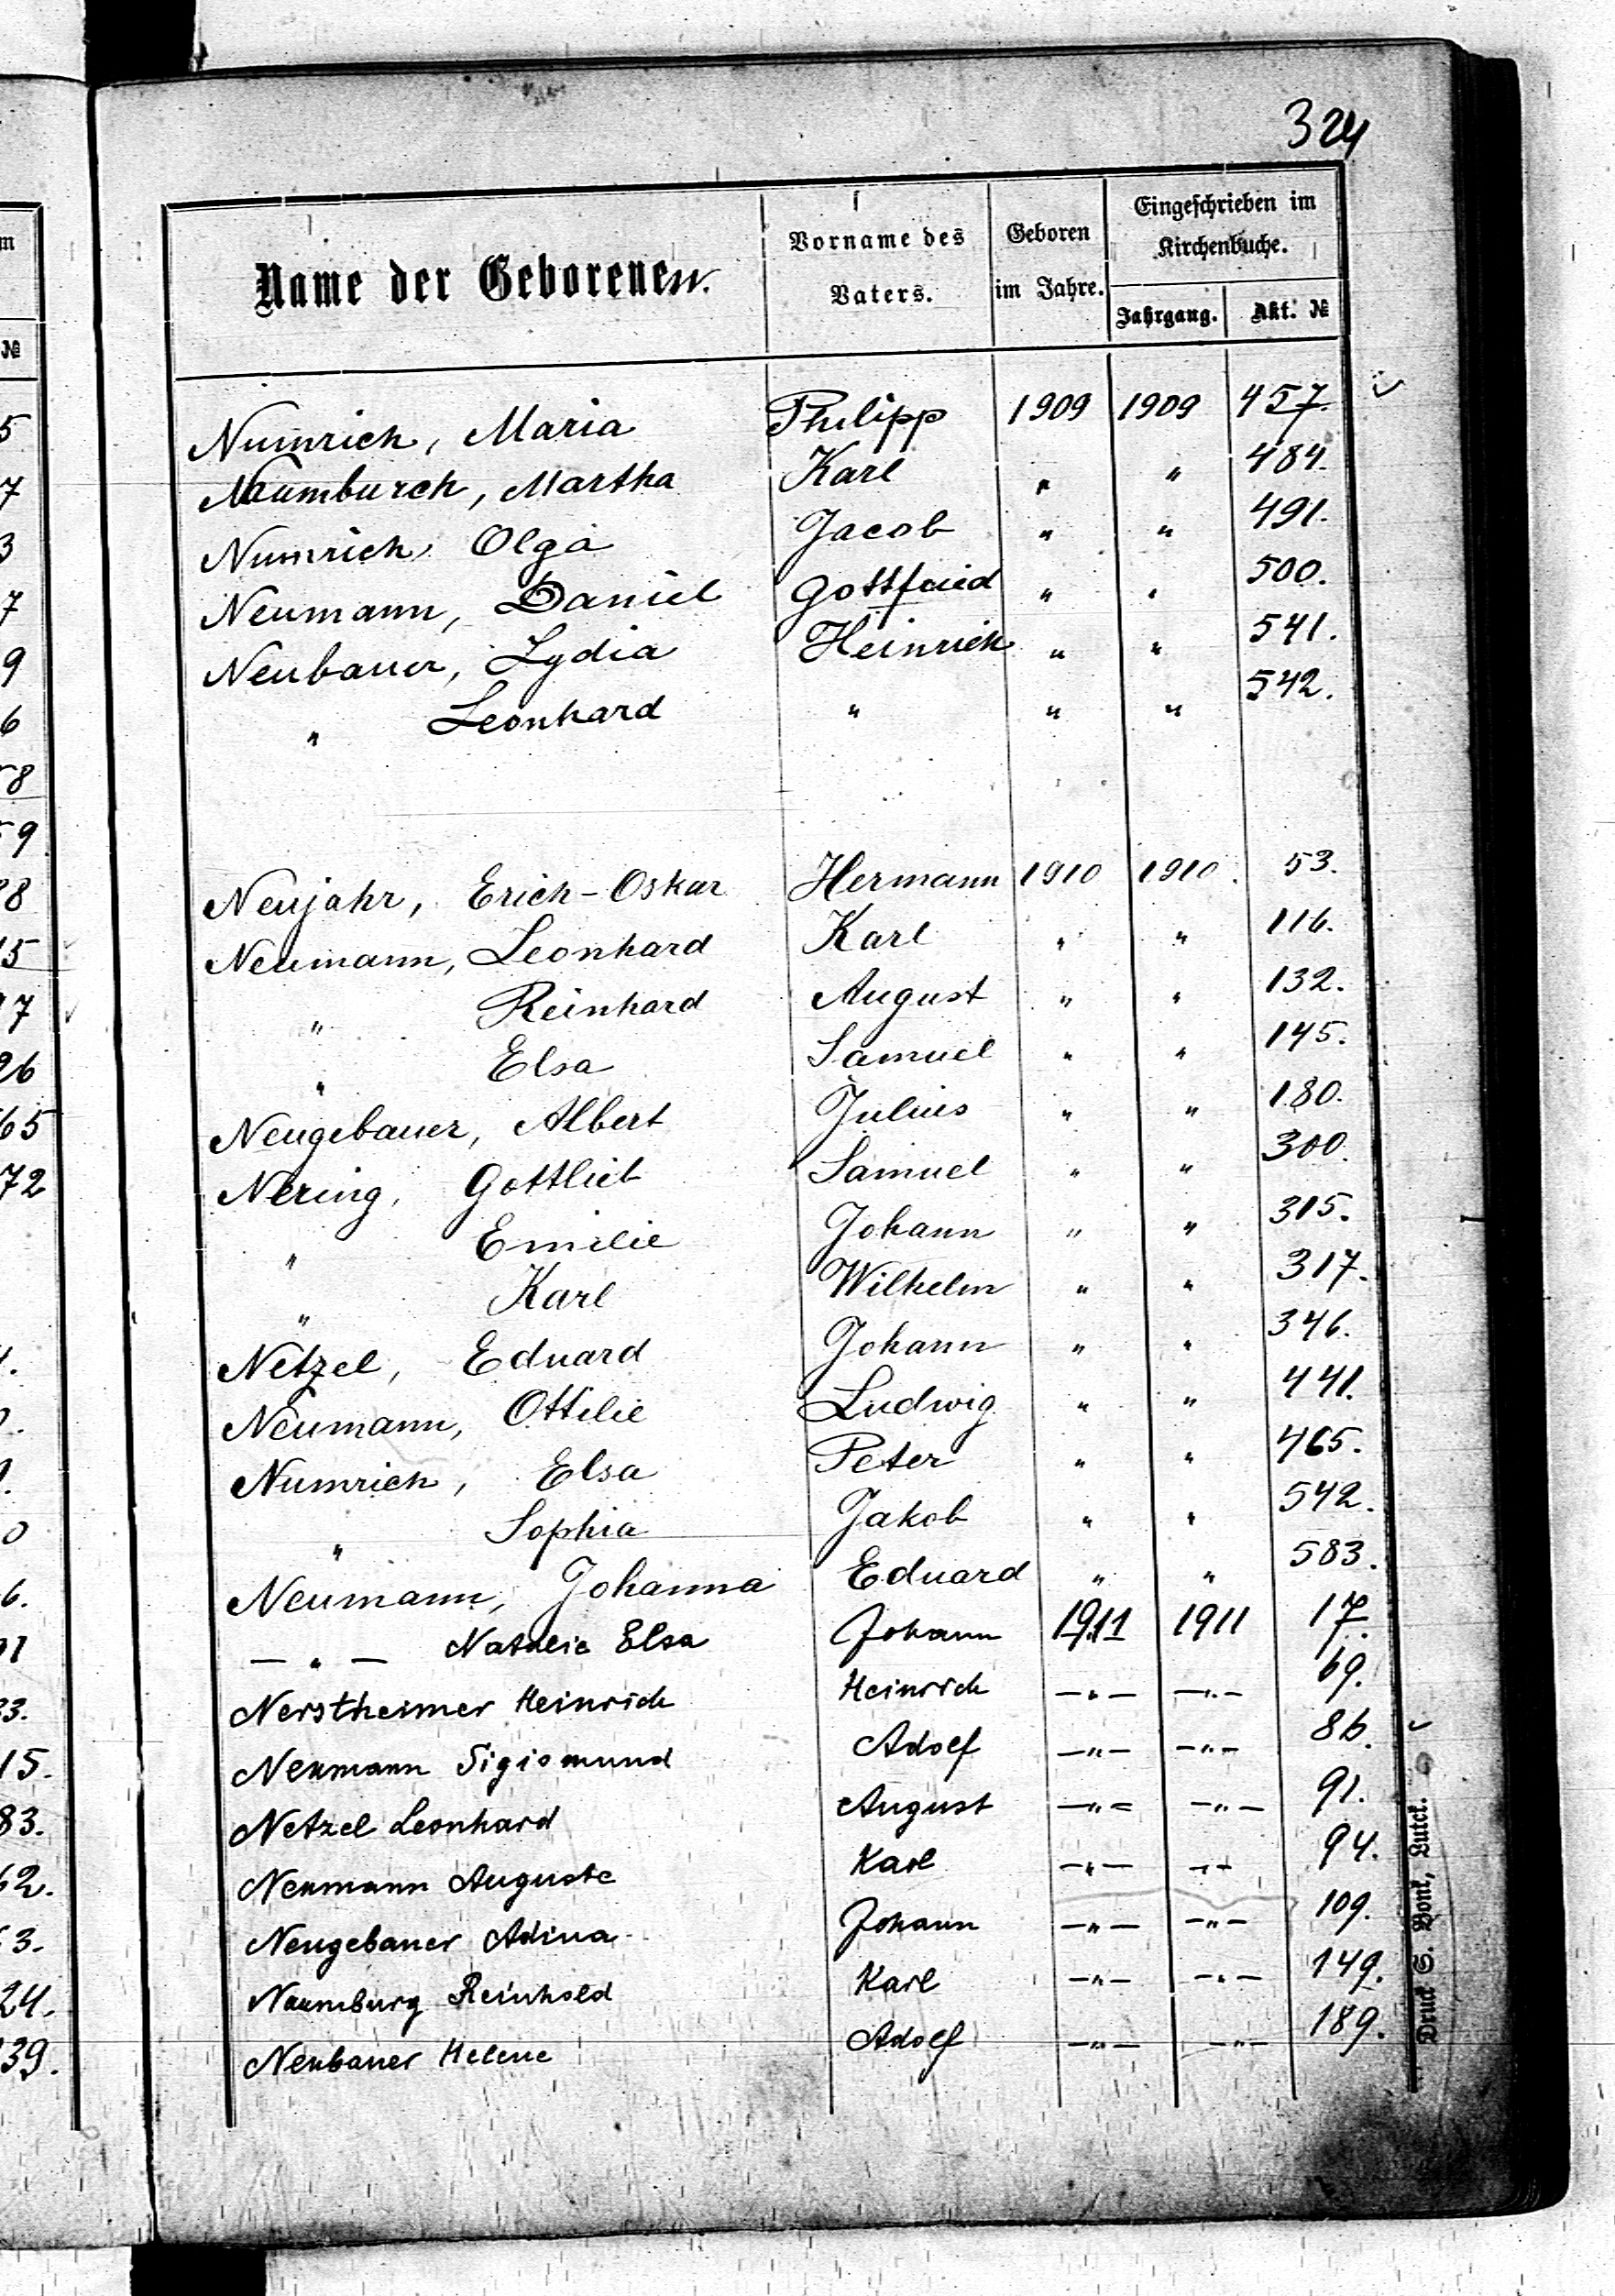 324
Name der Geborenen.
Vorname des Vaters.
Geboren im Jahre.
Eingeschrieben im Kirchenbuche.
Jahrgang. Akt. №
Numrich, Maria Philipp 1909 1909 457.
Naumburch, Martha Karl " " 484.
Numrich, Olga Jacob " " 491.
Neumann, Daniel Gottfried " " 500.
Neubauer, Lydia Heinrich " " 541.
" Leonhard " " " 542.
Neujahr, Erich-Oskar Hermann 1910 1910. 53.
Neumann, Leonhard Karl " " 116.
" Reinhard August " " 132.
" Elsa Samuel " " 145.
Neugebauer, Albert Julius " " 180.
Nering, Gottlieb Samuel " " 300.
" Emilie Johann " " 315.
" Karl Wilhelm " " 317.
Netzel, Eduard Johann " " 346.
Neumann, Ottilie Ludwig " " 441.
Numrich, Elsa Peter " " 465.
" Sophia Jakob " " 542.
Neumann, Johanna Eduard " " 583.
— " — Natalie Elsa Johann 1911 1911 17.
Nerstheimer Heinrich Heinrich —"— —"— 69.
Neumann Sigismund Adolf —"— —"— 86.
Netzel Leonhard August —"— —"— 91.
Neumann Auguste Karl —"— —"— 94.
Neugebauer Adina Johann —"— —"— 109.
Naumburg Reinhold Karl —"— —"— 149.
Neubauer Helene Adolf —"— —"— 189.
Druck S. Bonk, Lutck.